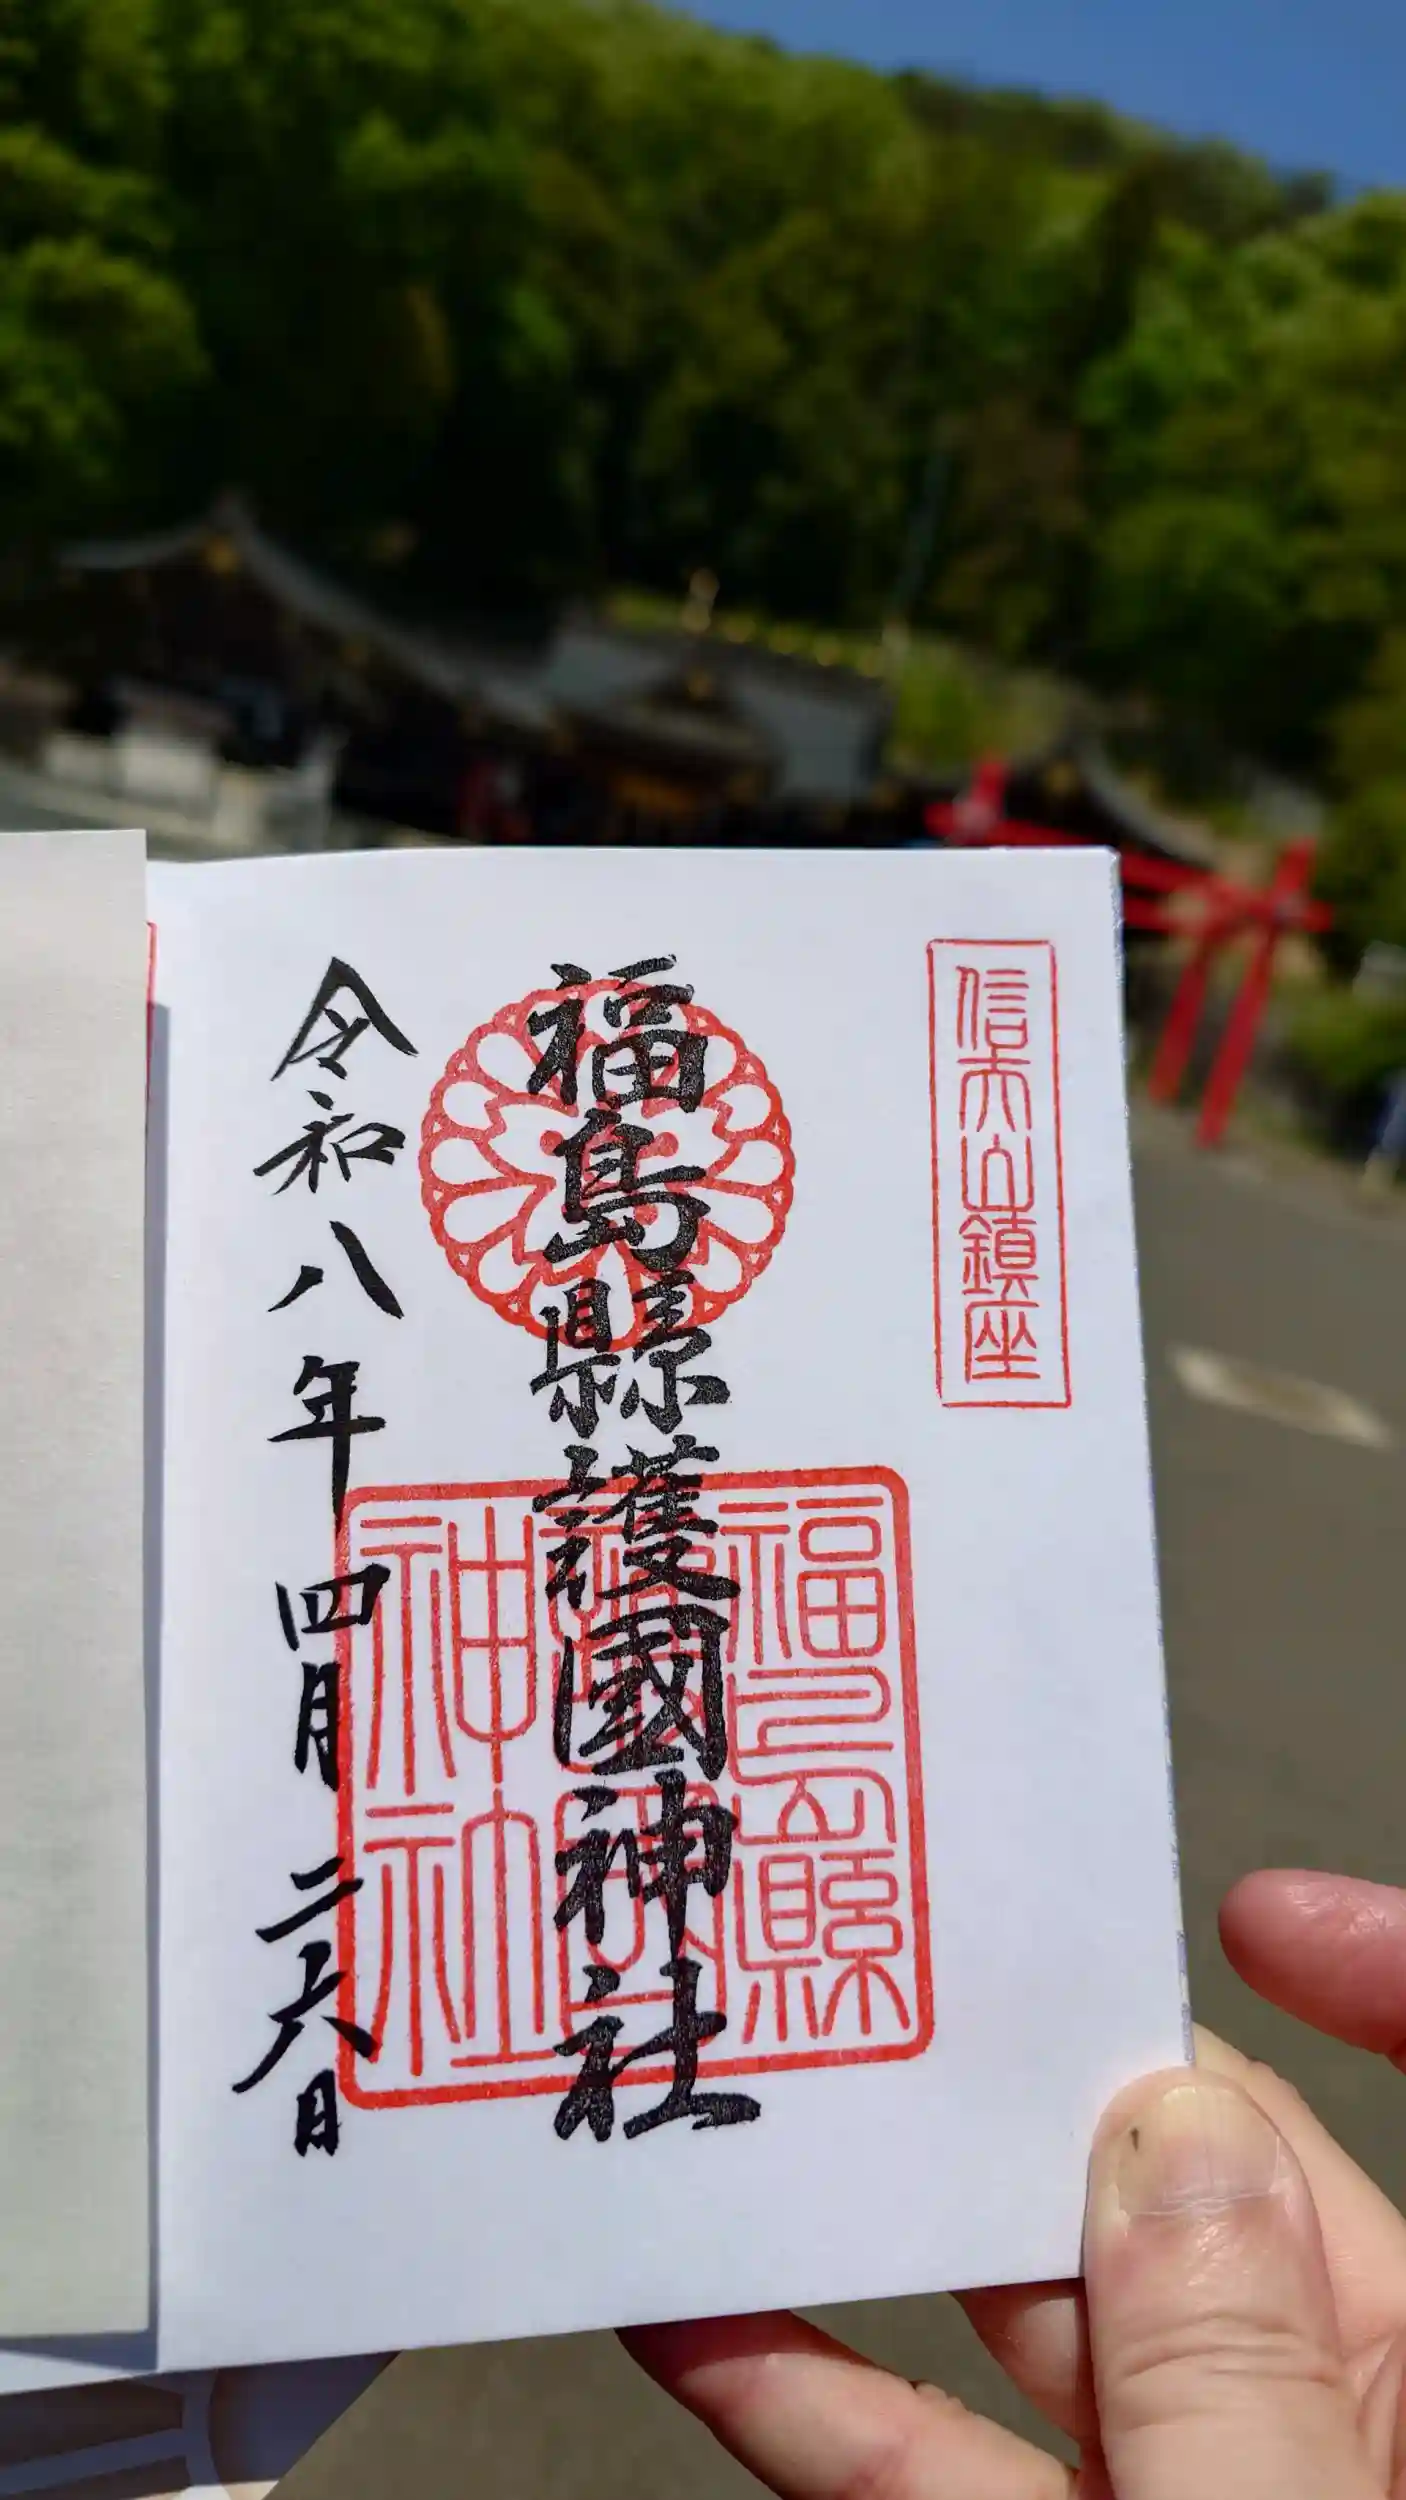 信夫山鎮座
福島縣護國神社
福島縣
護國
神社
令和八年四月二六日